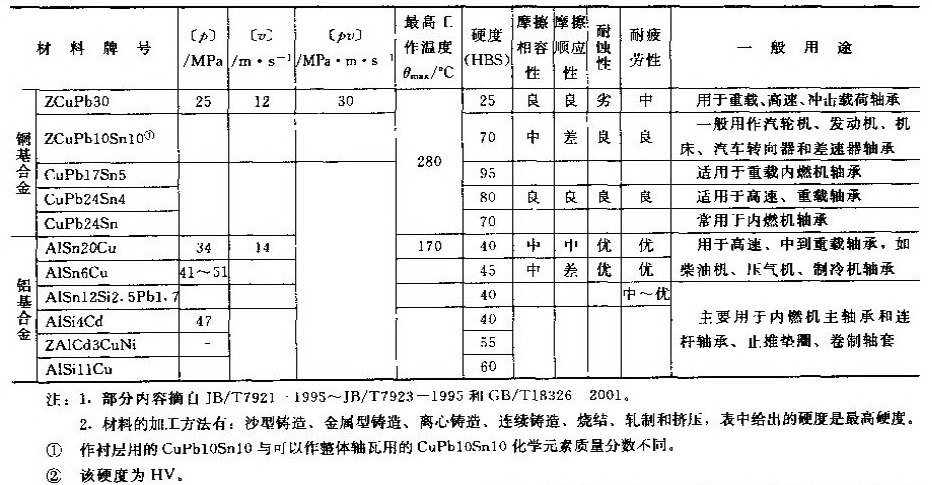 材 料 牌 号 〔p〕/MPa 〔v〕/m·s⁻¹ 〔pv〕/MPa·m·s⁻¹ 最高工作温度 θmax/℃ 硬度(HBS) 摩擦相容性 摩擦顺应性 耐蚀性 耐疲劳性 一 般 用 途
铜基合金
ZCuPb30 25 12 30 280 25 良 良 劣 中 用于重载、高速、冲击载荷轴承
ZCuPb10Sn10① 70 中 差 良 良 一般用作汽轮机、发动机、机床、汽车转向器和差速器轴承
CuPb17Sn5 95 适用于重载内燃机轴承
CuPb24Sn4 80 良 良 良 良 适用于高速、重载轴承
CuPb24Sn 70 常用于内燃机轴承
铝基合金
AlSn20Cu 34 14 170 40 中 中 优 优 用于高速、中到重载轴承，如柴油机、压气机、制冷机轴承
AlSn6Cu 41～51 45 中 差 优 优
AlSn12Si2.5Pb1.7 40 中～优 主要用于内燃机主轴承和连杆轴承、止推垫圈、卷制轴套
AlSi4Cd 47 40
ZAlCd3CuNi - 55
AlSi11Cu 60
注：1. 部分内容摘自 JB/T7921-1995～JB/T7923—1995 和 GB/T18326 2001。
2. 材料的加工方法有：沙型铸造、金属型铸造、离心铸造、连续铸造、烧结、轧制和挤压，表中给出的硬度是最高硬度。
① 作衬层用的 CuPb10Sn10 与可以作整体轴瓦用的 CuPb10Sn10 化学元素质量分数不同。
② 该硬度为 HV。